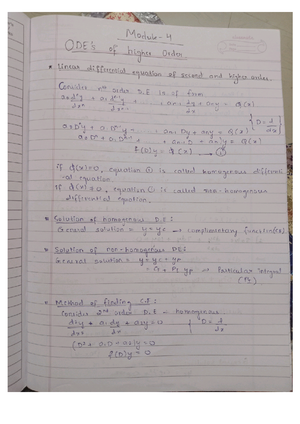 Module-4
ODE's of higher Order
• Linear differential equation of second and higher order
Consider nth order D.E is of form
a₀dⁿy/dxⁿ + a₁dⁿ⁻¹y/dxⁿ⁻¹ + ...... aₙ₋₁dy/dx + aₙy = Q(x)
a₀Dⁿy + a₁Dⁿ⁻¹y ---- aₙ₋₁Dy + aₙy = Q(x) {D = d/dx}
f(D)y = Q(x) → ①
if Q(x)=0, equation ① is called homogenous differen-
tial equation.
if Q(x)≠0, equation ① is called non-homogenous
differential equation.
• Solution of homogenous D.E:
General solution = y = yc → complementary function
• Solution of non-homogenous DE:
General solution = y = yc + yp
yp → Particular integral
• Method of finding
Consider 2nd order D.E - homogenous
d²y/dx² + a₁dy/dx + a₂y = 0 { D = d/dx
(D² + a₁D + a₂)y = 0
f(D)y = 0